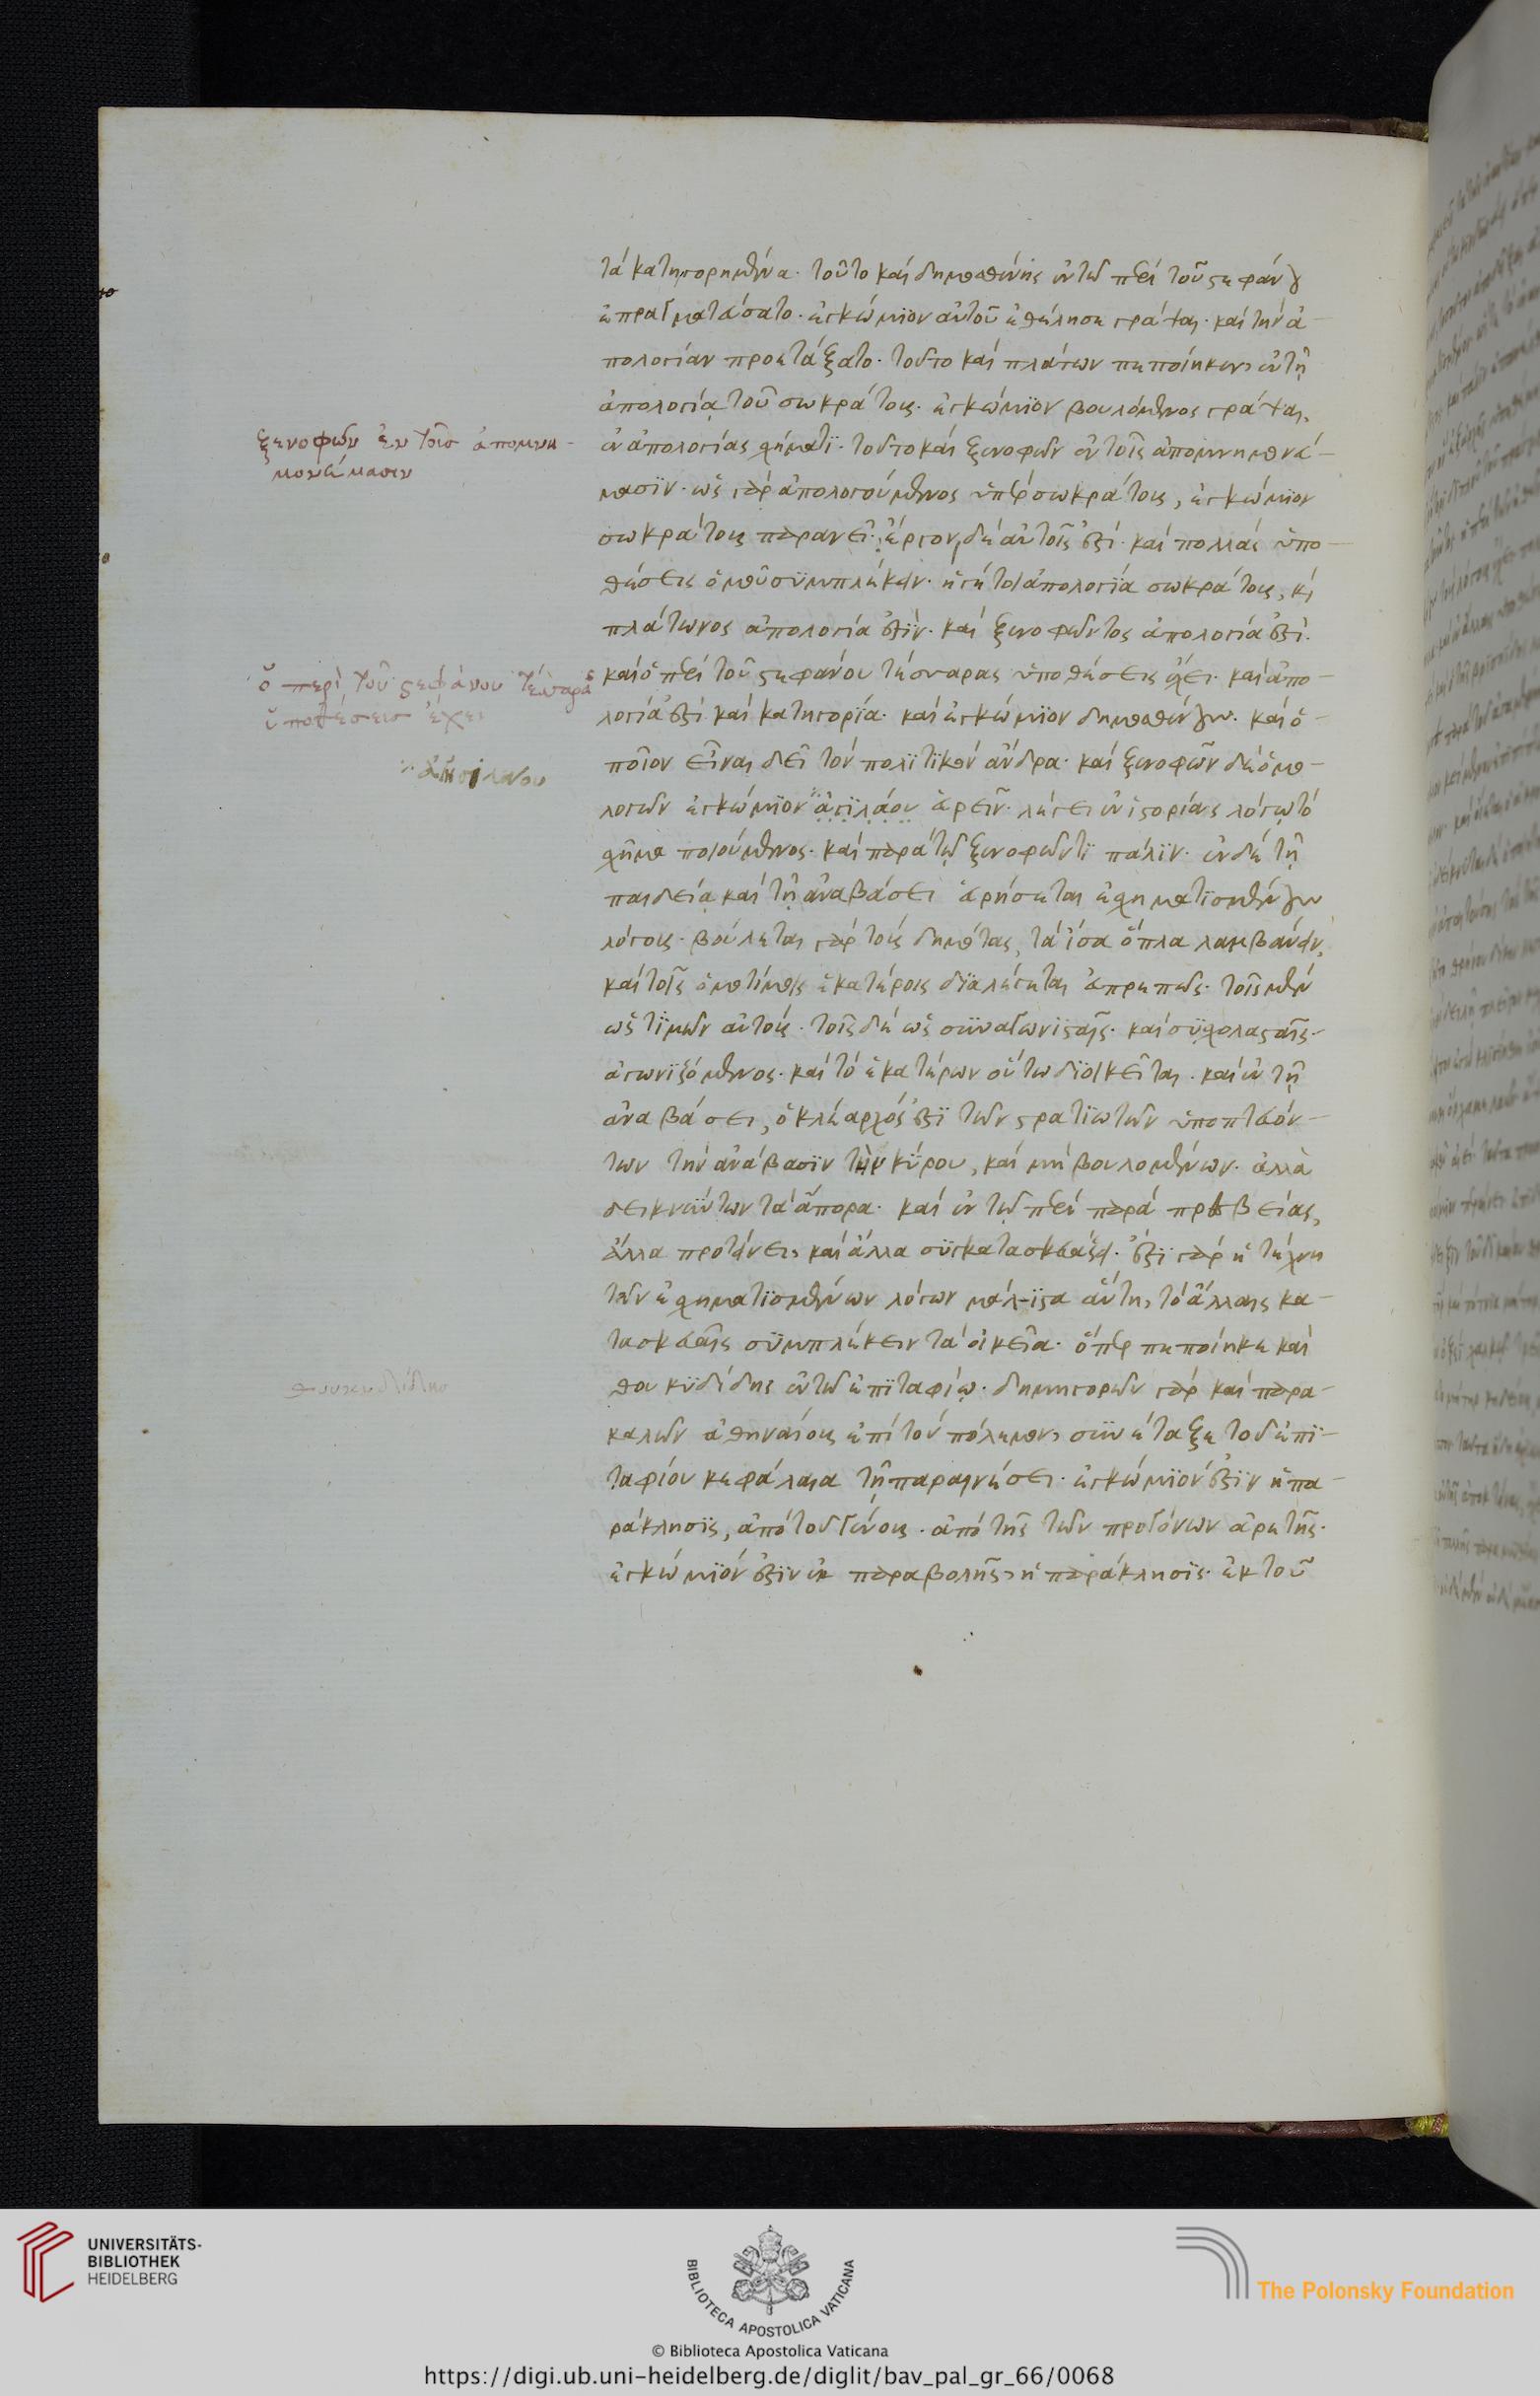 τὰ κατηγορημένα. τοῦτο καὶ δημοσθένης ἐν τῶ περὶ τοῦ στεφάνου
ἐπραγματεύσατο. ἐγκώμιον αὐτοῦ ἐθέλησε γράψαι. καὶ τὴν ἀ-
πολογίαν προετάξατο. τοῦτο καὶ πλάτων πεποίηκεν, ἐν τῇ
ἀπολογίᾳ τοῦ σωκράτους. ἐγκώμιον βουλόμενος γράψαι,
ἐν ἀπολογίας σχήματι. τοῦτο καὶ ξενοφῶν ἐν τοῖς ἀπομνημονεύ-
μασιν. ὡς γὰρ ἀπολογούμενος ὑπὲρ σωκράτους, ἐγκώμιον
σωκράτους περανεῖ. ἔργον δὲ αὐτοῖς ἐστί. καὶ πολλὰς ὑπο-
θέσεις ὁμοῦ συμπλέκειν. ἡ γέ τοι ἀπολογία σωκράτους, καὶ
πλάτωνος ἀπολογία ἐστίν. καὶ ξενοφῶντος ἀπολογία ἐστί.
καὶ ὁ περὶ τοῦ στεφάνου τέσσαρας ὑποθέσεις ἔχει. καὶ ἀπο-
λογία ἐστὶ καὶ κατηγορία. καὶ ἐγκώμιον δημοσθένους. καὶ ὁ-
ποῖον εἶναι δεῖ τὸν πολιτικὸν ἄνδρα. καὶ ξενοφῶν δὲ ὁμο-
λογῶν ἐγκώμιον ἀγιλάου ἐρεῖν. λέγει ἐν ἱστορίας λόγῳ τὸ
σχῆμα ποιούμενος. καὶ παρὰ τῷ ξενοφῶντι πάλιν. ἐν δὲ τῇ
παιδείᾳ καὶ τῇ ἀναβάσει χρήσεται ἐσχηματισμένοις
λόγοις. βούλεται γὰρ τοὺς δημότας, τὰ ἴσα ὅπλα λαμβάνειν,
καὶ τοῖς ὁμοτίμοις ἑκατέροις διαλέγεται εὐπρεπῶς. τοῖς μὲν
ὡς τιμῶν αὐτούς. τοῖς δὲ ὡς συναγωνισταῖς. καὶ συσχολασταῖς.
ἀγωνιζόμενος. καὶ τὸ ἑκατέρων οὕτω διοικεῖται. καὶ ἐν τῇ
ἀναβάσει, ὁ κλέαρχος ἐπὶ τῶν στρατιωτῶν ὑποπτευόν-
των τὴν ἀνάβασιν τὴν κύρου, καὶ μὴ βουλομένων. ἀλλὰ
δεικνύντων τὰ ἄπορα. καὶ ἐν τῷ περὶ παραπρεσβείας,
ἄλλα προτείνει, καὶ ἄλλα συγκατασκευάζει. ἔστι γὰρ ἡ τέχνη
τῶν ἐσχηματισμένων λόγων μάλιστα αὕτη, τὸ ἄλλαις κα-
τασκευαῖς συμπλέκειν τὰ οἰκεῖα. ὅπερ πεποίηκε καὶ
θουκυδίδης ἐν τῶ ἐπιταφίῳ. δημηγορῶν γὰρ καὶ παρα-
καλῶν ἀθηναίους ἐπὶ τὸν πόλεμον, συνέταξε τοῦ ἐπι-
ταφίου κεφάλαια τῇ παραινέσει. ἐγκώμιόν ἐστιν ἡ πα-
ράκλησις, ἀπὸ τοῦ γένους. ἀπὸ τῆς τῶν προγόνων ἀρετῆς.
ἐγκώμιόν ἐστιν ἐκ παραβολῆς, ἡ παράκλησις. ἐκ τοῦ
ξενοφῶν ἐν τοῖσ ἀπομνη-
μονεύμασιν
ὁ περὶ τοῦ στεφάνου τέσσαρας
ὑποθέσεισ ἔχει
θουκυδίδησ
UNIVERSITÄTS-
BIBLIOTHEK
HEIDELBERG
BIBLIOTECA APOSTOLICA VATICANA
The Polonsky Foundation
© Biblioteca Apostolica Vaticana
https://digi.ub.uni-heidelberg.de/diglit/bav_pal_gr_66/0068